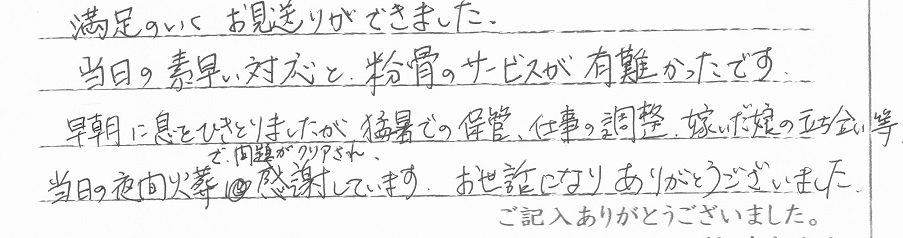 満足のいく お見送りができました.
当日の素早い対応と、粉骨のサービスが 有難かったです.
早朝に息をひきとりましたが 猛暑での保管、仕事の調整、嫁いだ娘の立ち会い等、
で、問題がクリアされ、
当日の夜間火葬 感謝しています. お世話になり ありがとうございました.
ご記入ありがとうございました。